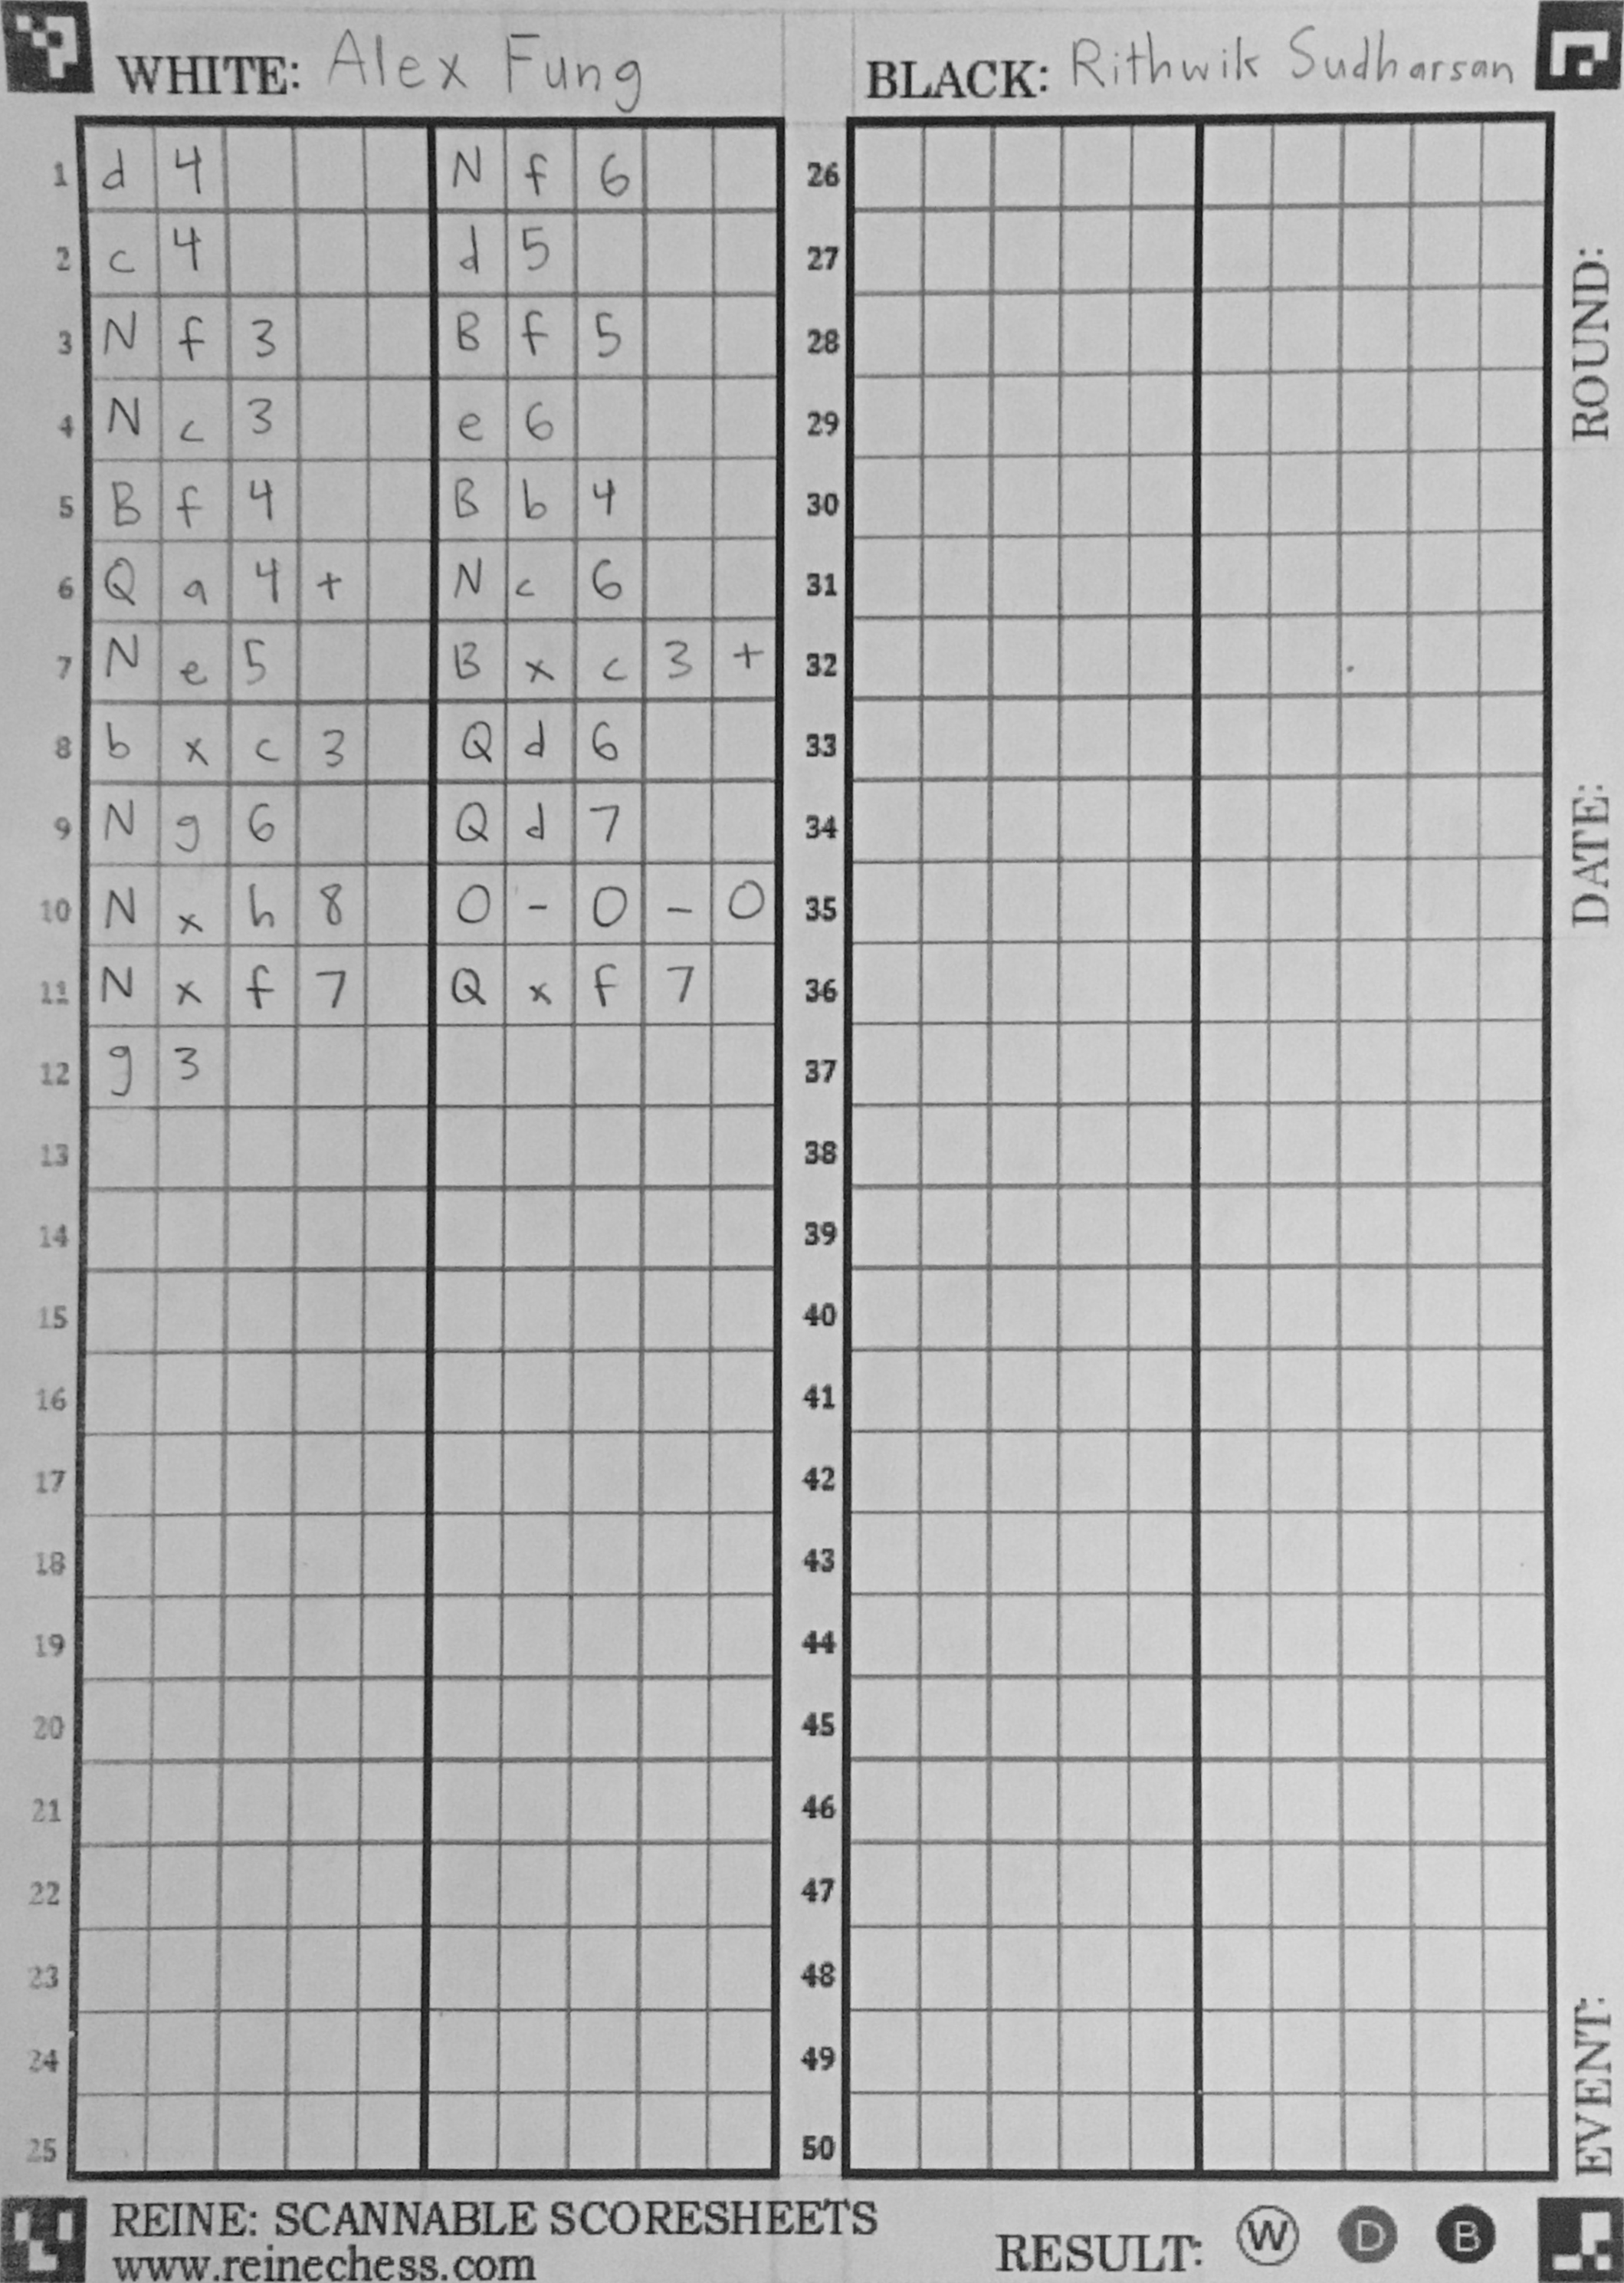 WHITE: Alex Fung
BLACK: Rithwik Sudharsan
1 d4 Nf6
2 c4 d5
3 Nf3 Bf5
4 Nc3 e6
5 Bf4 Bb4
6 Qa4+ Nc6
7 Ne5 Bxc3+
8 bxc3 Qd6
9 Ng6 Qd7
10 Nxh8 O-O-O
11 Nxf7 Qxf7
12 g3
13
14
15
16
17
18
19
20
21
22
23
24
25
26
27
28
29
30
31
32
33
34
35
36
37
38
39
40
41
42
43
44
45
46
47
48
49
50
ROUND:
DATE:
EVENT:
REINE: SCANNABLE SCORESHEETS
www.reinechess.com
RESULT: W D B